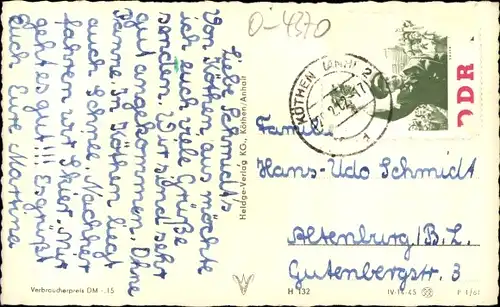 Liebe Schmidt's
Von Köthen aus möchte
ich euch viele Grüße
senden. Wir sind sehr
gut angekommen. Ohne
Panne. In Köthen liegt
auch Schnee. Nachher
fahren wir Skier. Mir
geht es gut!!! Es grüßt
Euch Eure Martina
O-4370
KÖTHEN (ANH) 2
DDR
Familie
Hans-Udo Schmidt
Altenburg/B.L.
Gutenbergstr. 3
Heldge-Verlag KG., Köthen/Anhalt
Verbraucherpreis DM -.15
H 132
IV-14-45
P 1/61